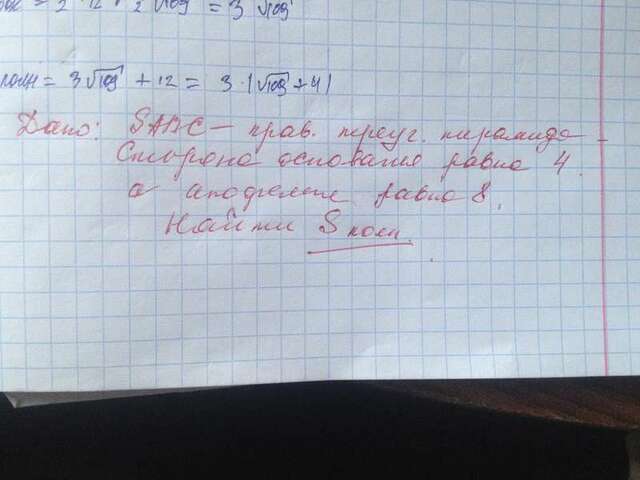 = 3√109
полн = 3√109 + 12 = 3·(√109 + 4)
Дано: SABC – прав. треуг. пирамида
Сторона основания равна 4
а апофема равна 8.
Найти Sполн.